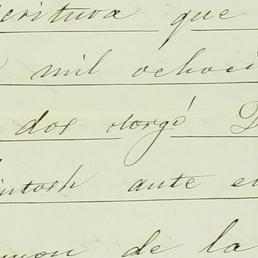 critura que
mil ochoci
dos otorgó D
intosh ante e
de la